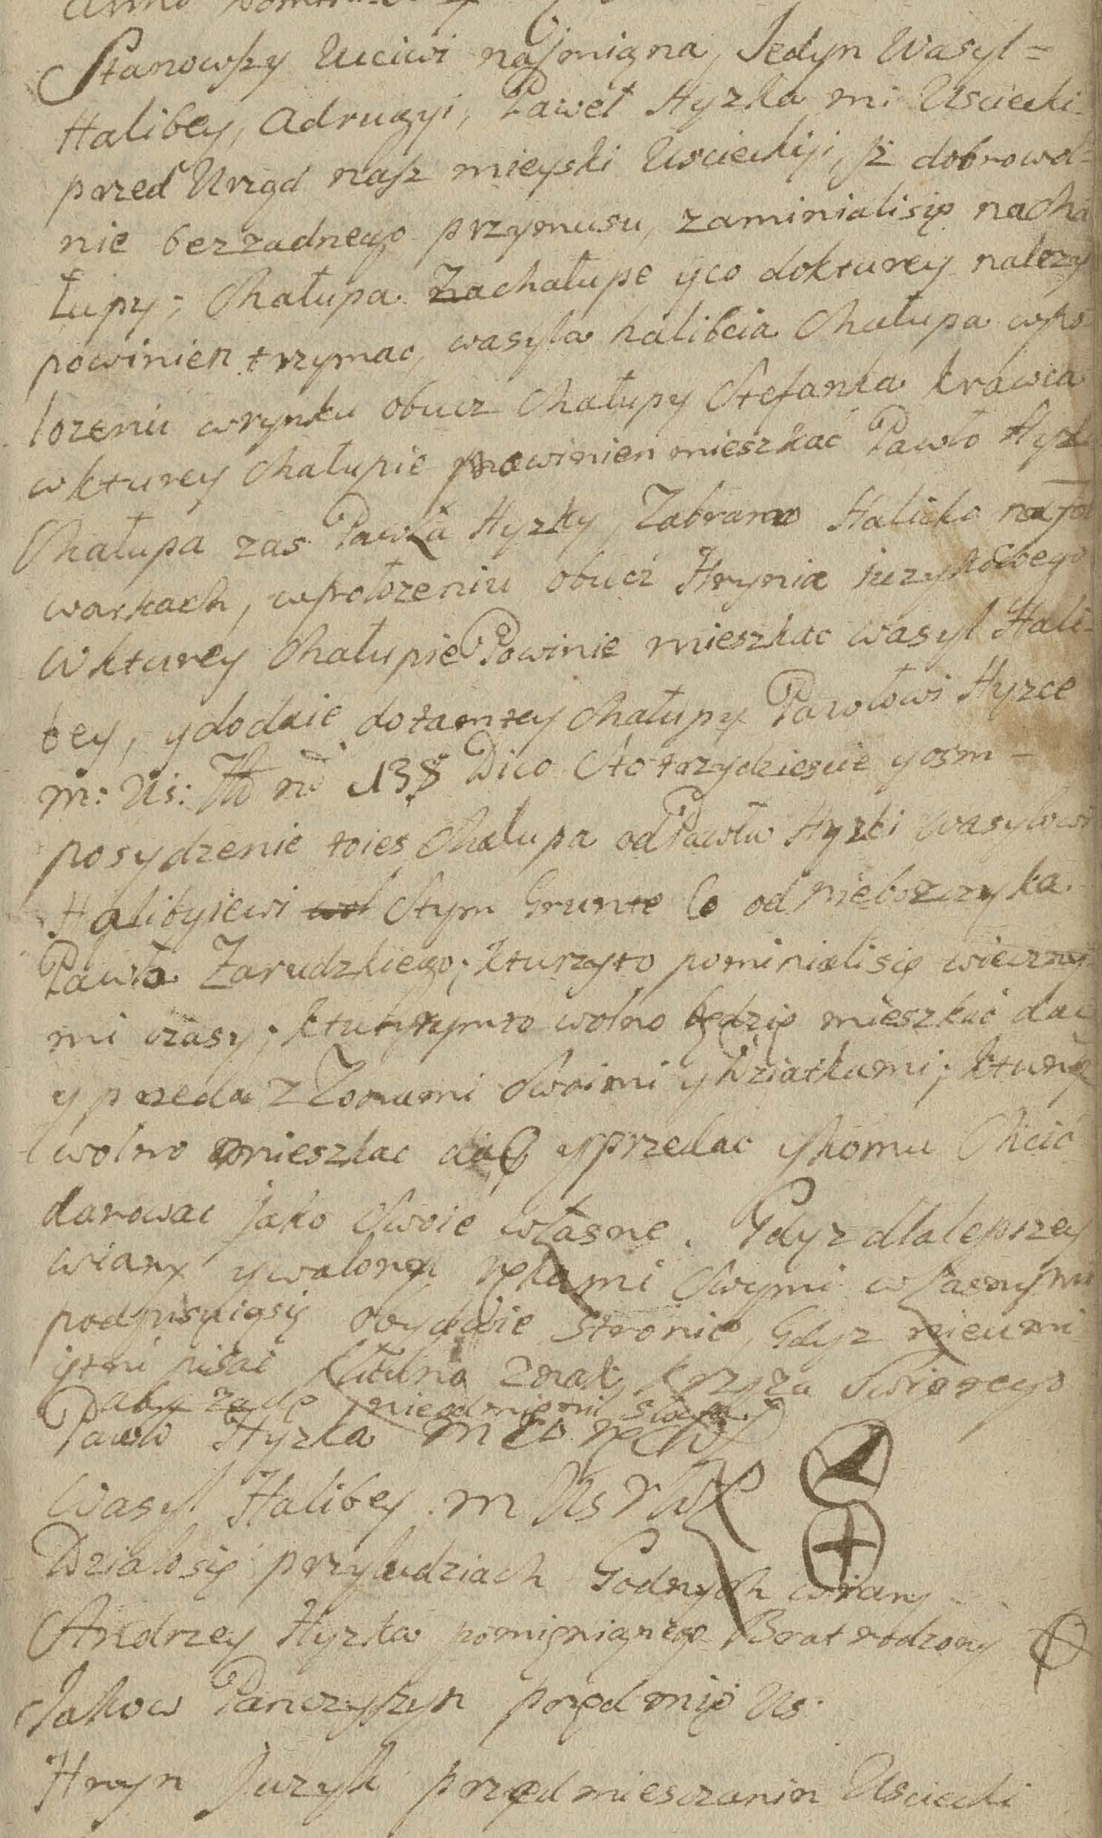 Stanowszy Uciwi nasmigna, Jedyn Wasyl=
Halibey, adrugyi, Paweł Hyzka mi Usciecki
przed Urząd nasz mieyski Uscieckiyi, Jż dobrowol=
nie bezzadnego przymusu, zaminialisię nacha
łupy; Chałupa Zachałupe yco dokturey nalezy
powinien trzymac, wasyla halibeia Chałupa wpo
lozeniu wrynku obucz Chałupy Stefanka krawca
wkturey Chałupie powinien mieszkac Pawło Hyzk
Chałupa zas Pawła Hyzky, Zabramo Halicko nafol
warkach, wpołozeniu obucz Hrynia juzykowego
Wkturey Chałupie Powinie mieszkac wasyl Hali-
bey, ydodaie dotamtey Chałupy Pawłowi Hyzce
m: Us: 138 Dico Sto trzydziescie yosm -
posydzenie toies Chałupa odPawła Hyzki Wasylowi
Halibyiewi Stym Grunte Co od niebozczyka
Pawła Zarudzkiego; kturzyto pominialisię wieczny
mi czasy; kturymto wolno będzię mieszkać dać
y przeda z Zonami Swoimi ydziatkami;
wolno mieszkac dać yprzedac ykomu Chcić
darowac jako Swoie własne. Gdyz dlalepszey
wiary ywalory rękami Swymi własnymi
podpisuiąsię obydwie Stronie, Gdyz nieumi
iętni pisać znak krzyza Swiętego
Pawło Hyzka
Wasyl Halibey m Us
Działosię przyludziach Godnych wiary
Andrzey Hyzka Brat rodzony
Jakow Panczyszyn przedmię Us:
Hryn Juzyk przedmiesczanin Usciecki